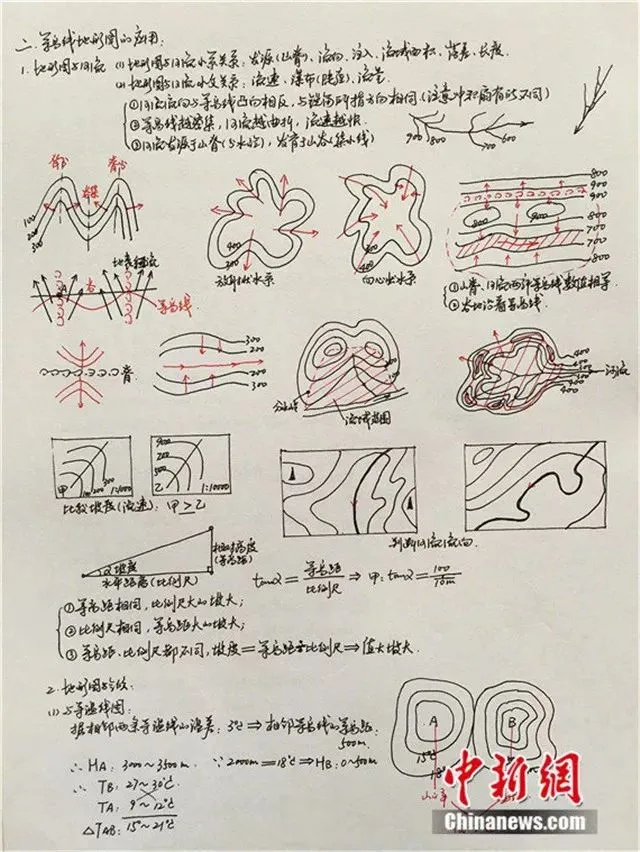 二.等高线地形图的应用.
1.地形图与河流 (1)地形图与河流水系关系:发源(山脊)、流向、注入、流域面积、落差、长度.
(2)地形图与河流水文关系:流速、瀑布(陡崖)、流量
①河流流向与等高线凸向相反,与锐角所指方向相同(注意冲积扇有所不同)
②等高线越密集,河流越曲折,流速越快
③河流发源于山脊(分水岭),发育于山谷(集水线)
900 800 700 600
100
200
300
400
300
放射状水系
向心状水系
800
900
900
800
700
700
800
①山脊、河流两邻等高线数值相等
②谷地沿着等高线.
谷
等高线
脊
300
200
200
300
分水线
流域范围
400
400
河流
甲 100 200 300 1:1000
400
200
乙 1:10000
比较坡度(流速):甲>乙
判断河流流向.
相对高度
(等高距)
α坡度
水平距离(比例尺)
tanα=等高距/比例尺⇒甲:tanα=100/10m
①等高距相同,比例尺大的坡大;
②比例尺相同,等高距大的坡大;
③等高距、比例尺都不同,坡度=等高距×比例尺⇒值大坡大.
2.地形图与气候
(1)与等温线图:
据相邻两条等温线的温差:3℃⇒相邻等高线的等高距:
500m.
∴HA:3000~3500m. ∵2000m=18℃⇒HB:0~500m
∴TB:27~30℃
TA:9~12℃
△TAB:15~21℃
A
B
15℃
18℃
中新網
Chinanews.com